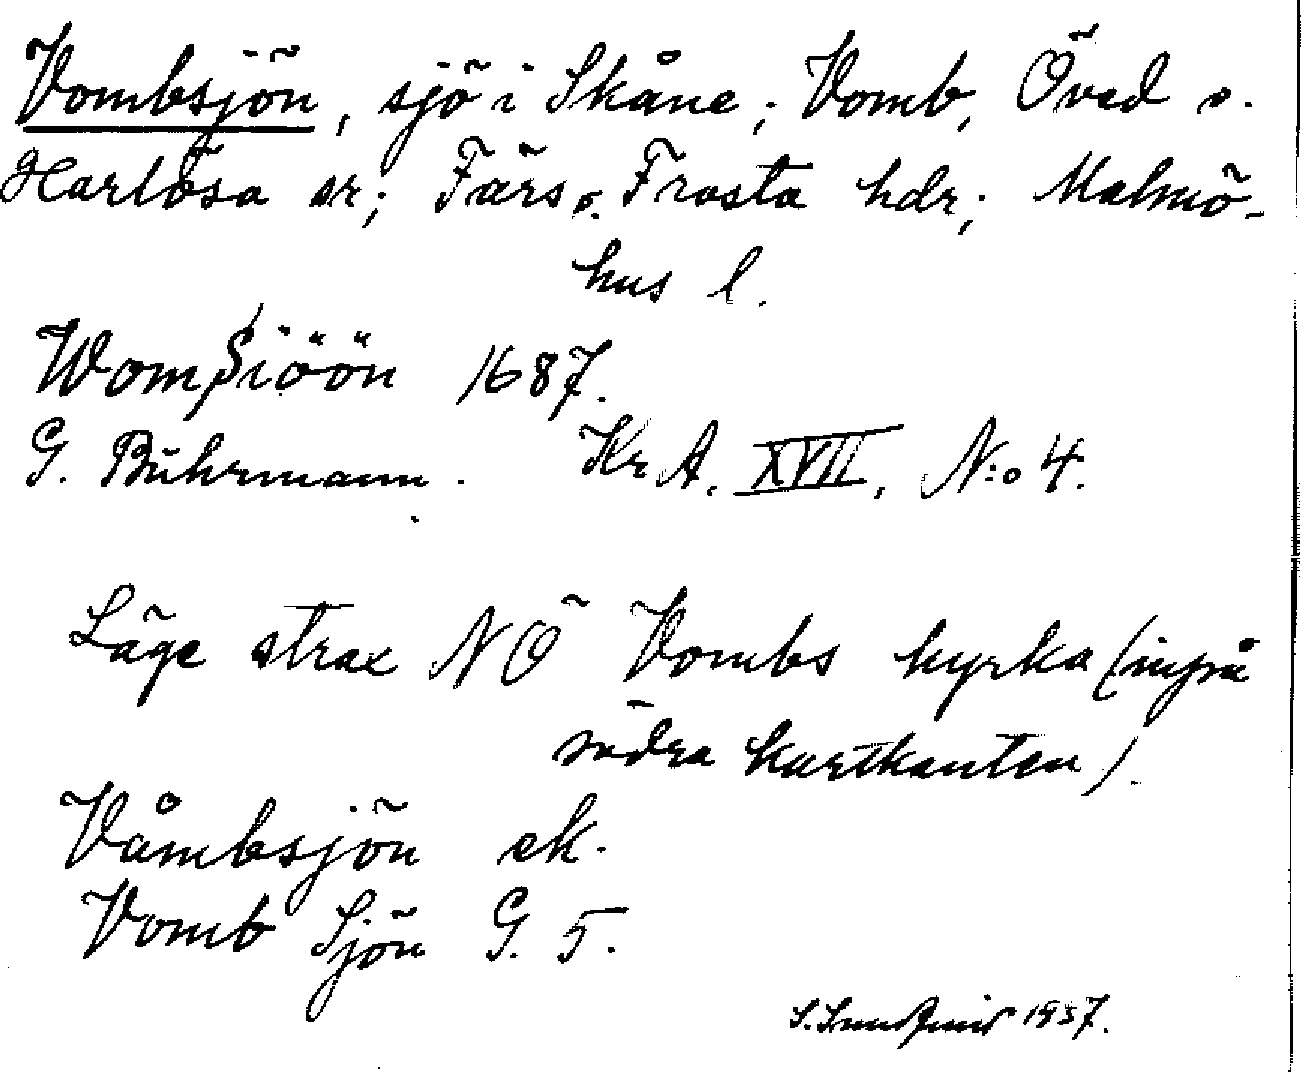 Vombsjön, sjö i Skåne; Vomb, Öved o.
Harlösa sr; Färs o. Frosta hdr; Malmö-
hus l.
WomSiöön 1687.
G. Buhrmann. KrA, XVII, N:o 4.
Läge strax NÖ Vombs kyrka (invid
södra kartkanten).
Våmbsjön ek.
Vomb Sjön G. 5.
S. 1937.